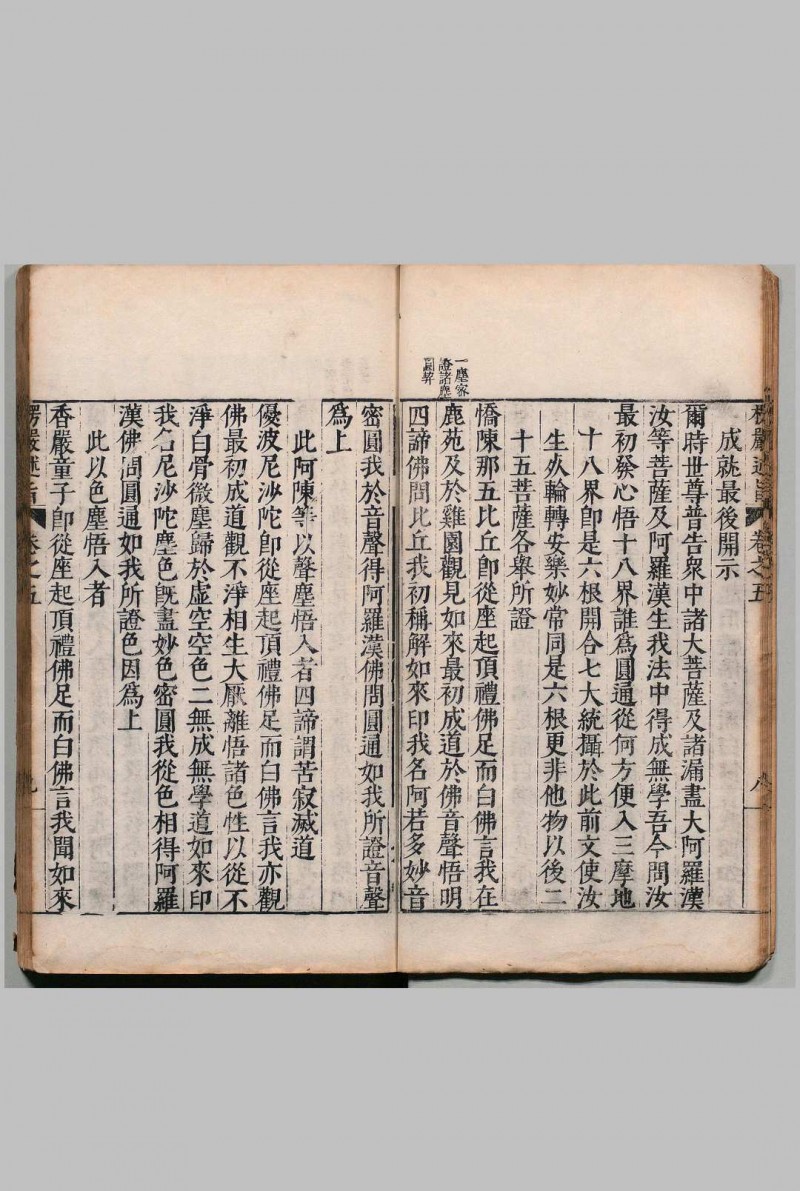 楞嚴述旨
卷之五
八
成就最後開示
爾時世尊普告衆中諸大菩薩及諸漏盡大阿羅漢
汝等菩薩及阿羅漢生我法中得成無學吾今問汝
最初發心悟十八界誰爲圓通從何方便入三摩地
十八界卽是六根開合七大統攝於此前文使汝
生死輪轉安樂妙常同是六根更非他物以後二
十五菩薩各舉所證
憍陳那五比丘卽從座起頂禮佛足而白佛言我在
一塵密
證諸塵
圓契
鹿苑及於雞園觀見如來最初成道於佛音聲悟明
四諦佛問比丘我初稱解如來印我名阿若多妙音
密圓我於音聲得阿羅漢佛問圓通如我所證音聲
爲上
此阿陳等以聲塵悟入者四諦謂苦寂滅道
優波尼沙陀卽從座起頂禮佛足而白佛言我亦觀
佛最初成道觀不淨相生大厭離悟諸色性以從不
淨白骨微塵歸於虛空空色二無成無學道如來印
我名尼沙陀塵色旣盡妙色密圓我從色相得阿羅
漢佛問圓通如我所證色因爲上
此以色塵悟入者
香嚴童子卽從座起頂禮佛足而白佛言我聞如來
楞嚴述旨
卷之五
九